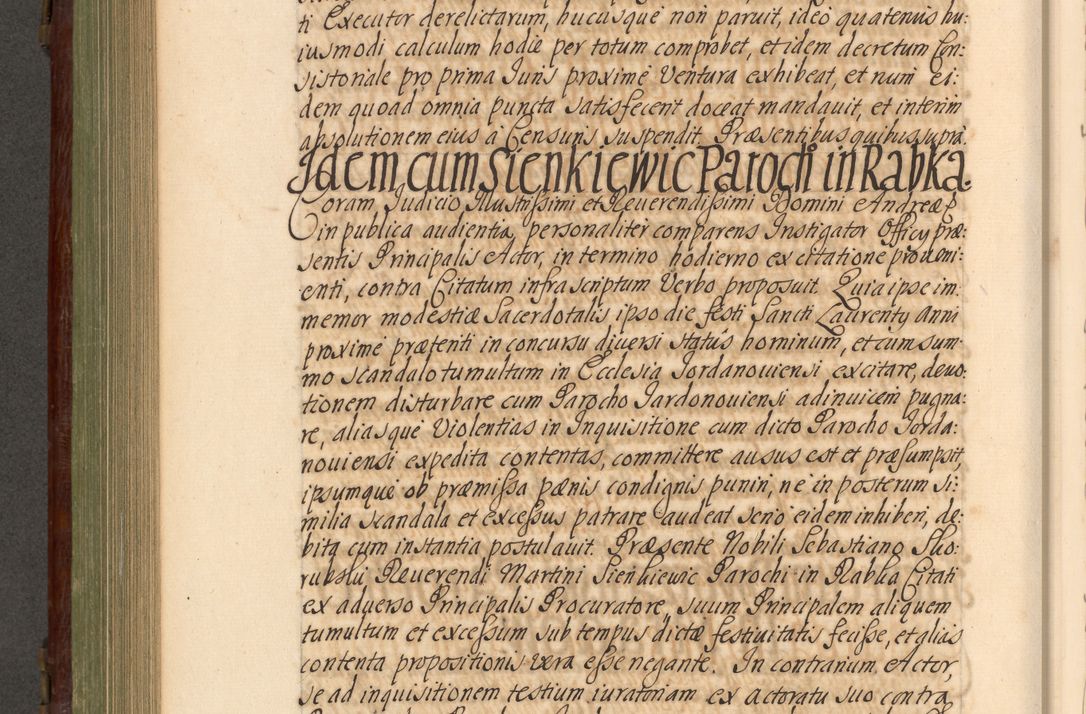 ti Executor derelictarum, hucusque non paruit, ideo quatenus hu:
iusmodi calculum hodie per totum comprobet, et idem decretum Con:
sistoriale pro prima Iuris proxime ventura exhibeat, et num ei:
dem quoad omnia puncta satisfecerit doceat mandauit, et interim
absolutionem eius á Censuris suspendit. Præsentibus quibus supra.
Idem cum Sienkiewic Parochi in Rabka.
Coram Judicio Illustrissimi et Reuerendissimi Domini Andreæ P
in publica audientia personaliter comparens Instigator Officij præ:
sentis Principalis Actor, in termino hodierno ex citatione proueni:
enti, contra Citatum infrascriptum Verbo proposuit. Quia ipse im:
memor modestiæ Sacerdotalis ipso die festi Sancti Laurentij Anni
proxime præteriti in concursu diuersi statús hominum, et cum sum:
mo scandalo tumultum in Ecclesia Jordanouiensi excitare, deuo:
tionem disturbare cum Parocho Jardonouiensi adinuicem pugna:
re, aliasque Violentias in Inquisitione cum dicto Parocho Jorda:
nouiensi expedita contentas, committere ausus est et præsumpsit,
ipsumque ob præmissa pænis condignis puniri, ne in posterum si:
milia scandala et excessus patrare audeat serió eidem inhiberi, de:
bita cum instantia postulauit. Præsente Nobili Sebastiano Sko:
rupski Reuerendi Martini Sienkiewic Parochi in Rabka Citati
ex aduerso Principalis Procuratore, suum Principalem aliquem
tumultum et excessum sub tempus dictæ festiuitatis fecisse, et alias
contenta propositionis vera esse negante. In contrarium Actor,
se ad inquisitionem testium iuratoriam ex actoratu suo contra